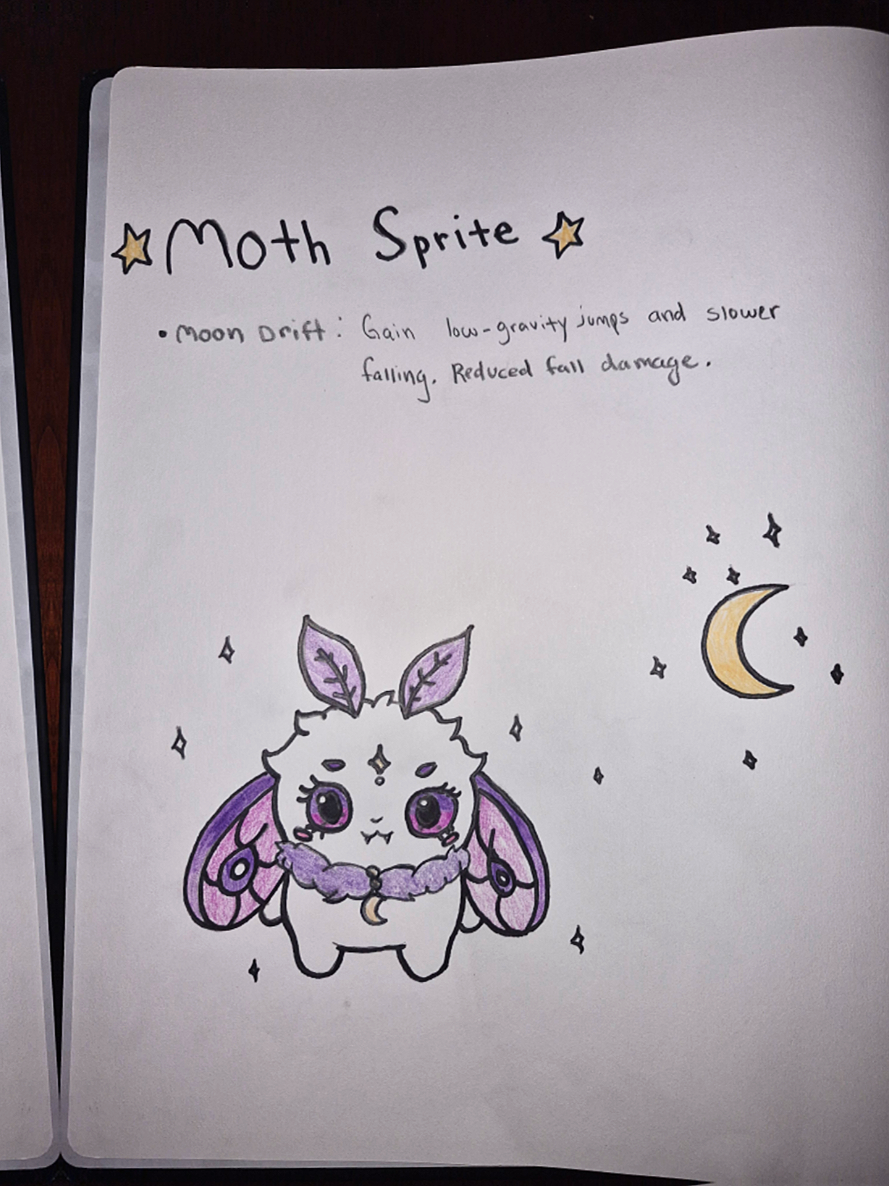 Moth Sprite
• Moon Drift: Gain low-gravity jumps and slower
falling. Reduced fall damage.